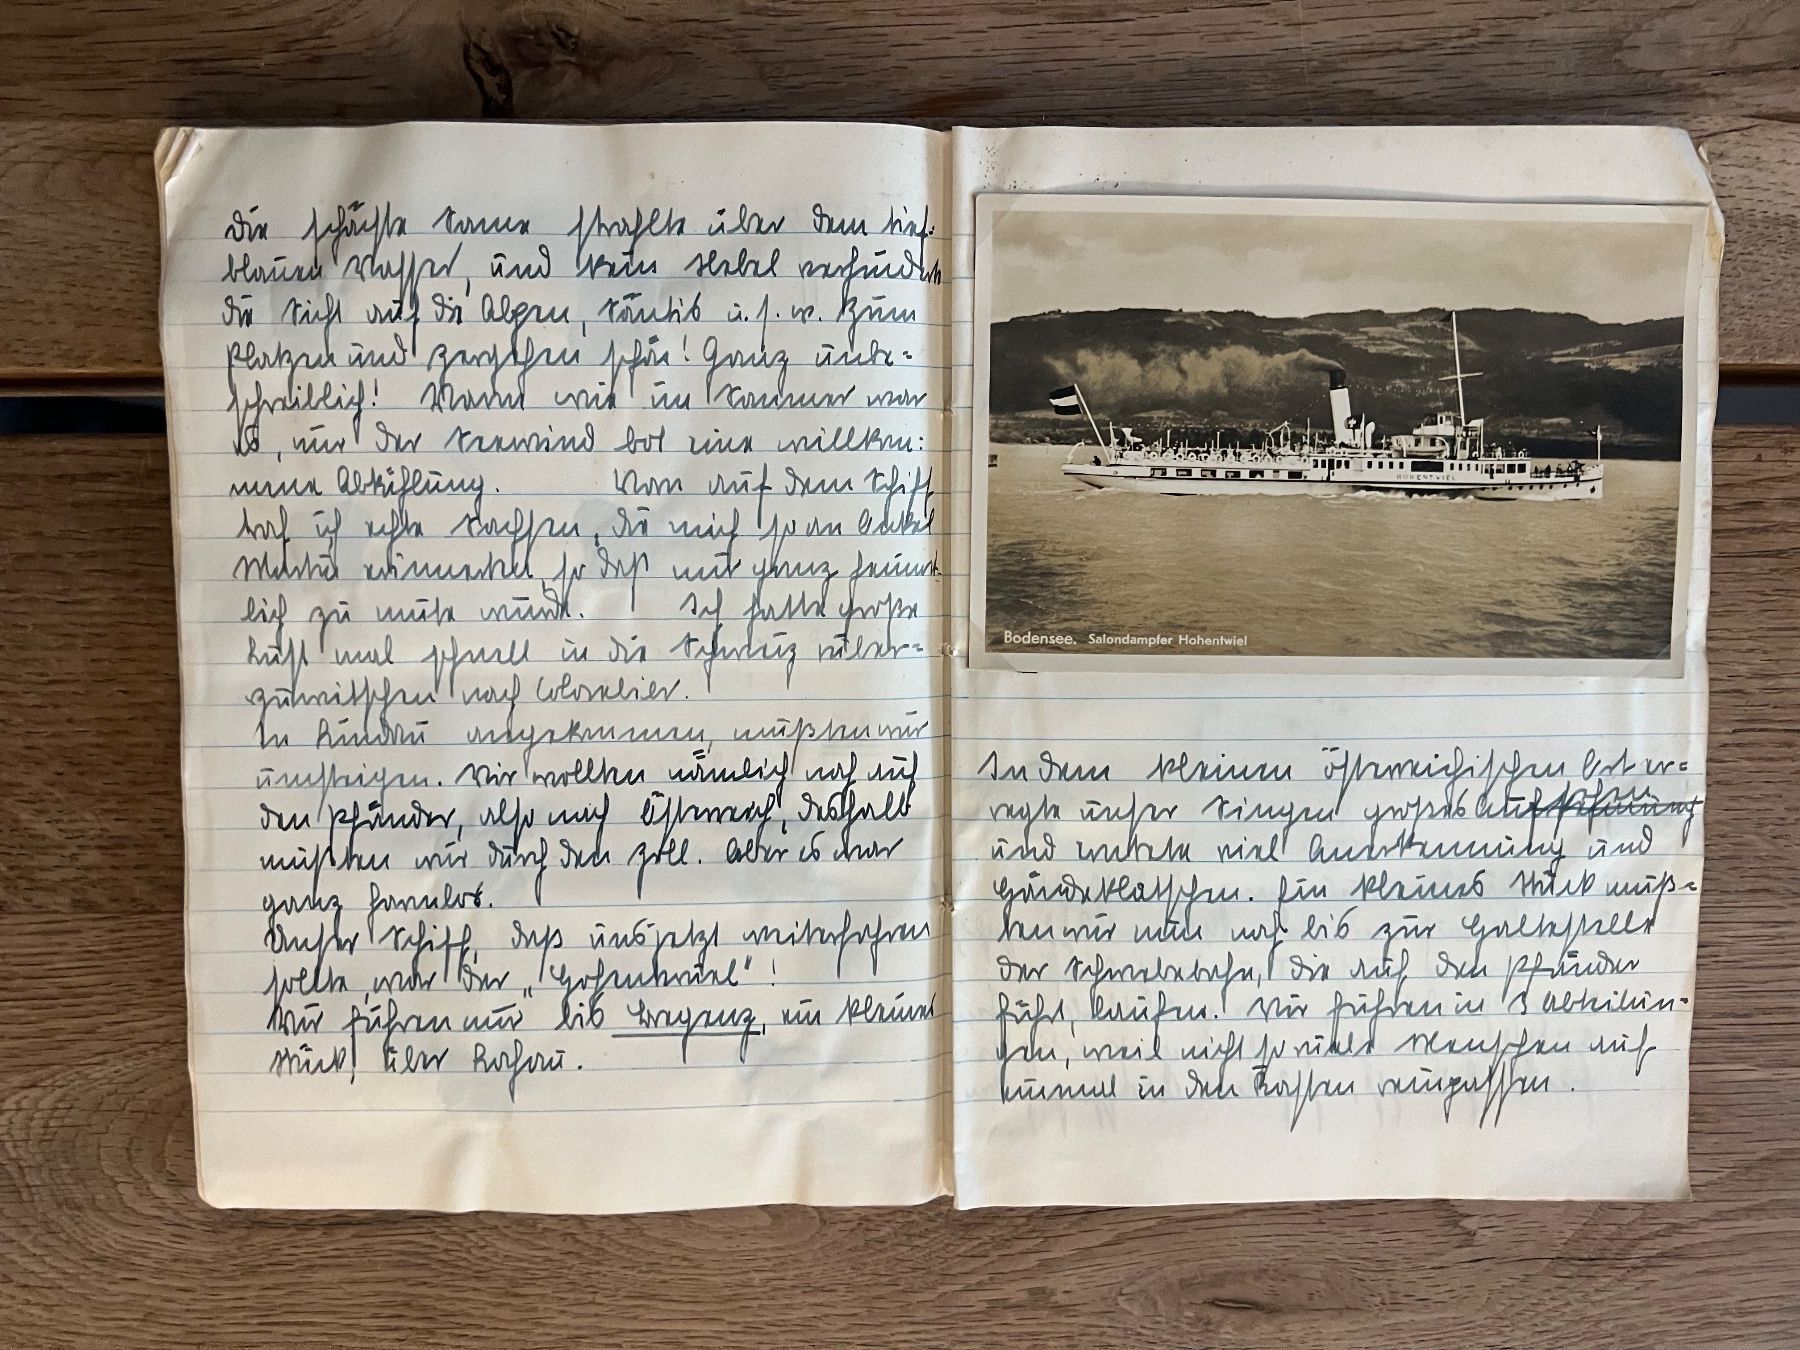 Die schönste Sonne strahlte über dem tief-
blauen Wasser, und kein Nebel verhinderte
die Sicht auf die Alpen, Säntis u. s. w. Zum
Platzen und Zergehen schön! Ganz unbe-
schreiblich! Warm wie im Sommer war
es, nur der Seewind bot eine willkom-
mene Abkühlung. Vorn auf dem Schiff
traf ich echte Sachsen, die mich so an Onkel
Martin erinnerten, so daß mir ganz heimat-
lich zu mute wurde. Ich hatte große
Lust mal schnell in die Schweiz rüber-
zuwitschen nach
In Lindau angekommen, mußten wir
umsteigen. Wir wollten nämlich noch auf
den Pfänder, also nach Österreich, deshalb
mußten wir durch den Zoll. Aber es war
ganz harmlos.
Unser Schiff, daß uns jetzt weiterfahren
sollte, war der „Hohentwiel"!
Wir fuhren nur bis Bregenz, ein kleines
Stück über Lochau.
Bodensee. Salondampfer Hohentwiel
HOHENTWIEL
In dem kleinen österreichischen Ort er-
regte unser Singen großes Aufsehen
und erntete viel Anerkennung und
Händeklatschen. Ein kleines Stück muß-
ten wir nun noch bis zur Haltestelle
der Schwebebahn, die auf den Pfänder
führt, laufen. Wir fuhren in 3 Abteilun-
gen, weil nicht so viele Menschen auf
einmal in den Kasten reinpassen.